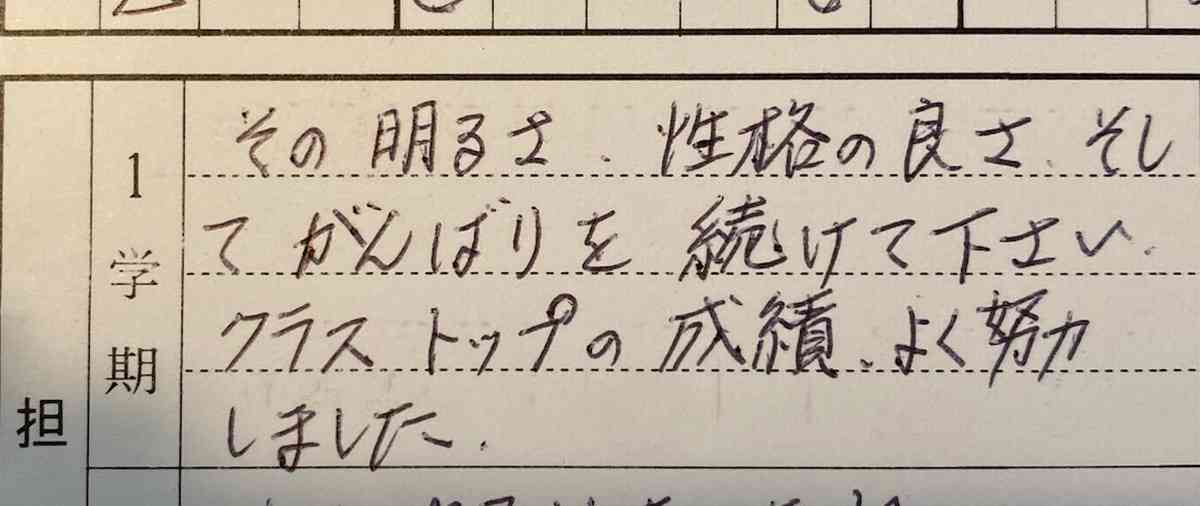 1学期
その明るさ、性格の良さ、そし
てがんばりを続けて下さい。
クラストップの成績、よく努力
しました。
担